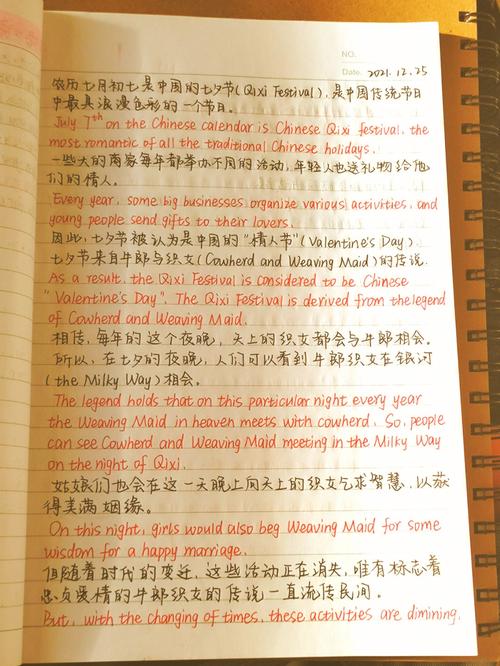 NO.
Date. 2021.12.25
农历七月初七是中国的七夕节(Qixi Festival),是中国传统节日
中最具浪漫色彩的一个节日。
July 7th on the Chinese calendar is Chinese Qixi festival, the
most romantic of all the traditional Chinese holidays.
一些大的商家每年都举办不同的活动,年轻人也送礼物给他
们的情人。
Every year, some big businesses organize various activities, and
young people send gifts to their lovers.
因此,七夕节被认为是中国的“情人节”(Valentine's Day).
七夕节来自牛郎与织女(Cowherd and Weaving Maid)的传说.
As a result, the Qixi Festival is considered to be Chinese
"Valentine's Day". The Qixi Festival is derived from the legend
of Cowherd and Weaving Maid.
相传,每年的这个夜晚,天上的织女都会与牛郎相会。
所以,在七夕的夜晚,人们可以看到牛郎织女在银河
(the Milky Way)相会。
The legend holds that on this particular night every year
the Weaving Maid in heaven meets with cowherd. So, people
can see Cowherd and Weaving Maid meeting in the Milky Way
on the night of Qixi.
姑娘们也会在这一天晚上向天上的织女乞求智慧,以获
得美满姻缘。
On this night, girls would also beg Weaving Maid for some
wisdom for a happy marriage.
但随着时代的变迁,这些活动正在消失,唯有标志着
忠贞爱情的牛郎织女的传说一直流传民间。
But, with the changing of times, these activities are dimining,